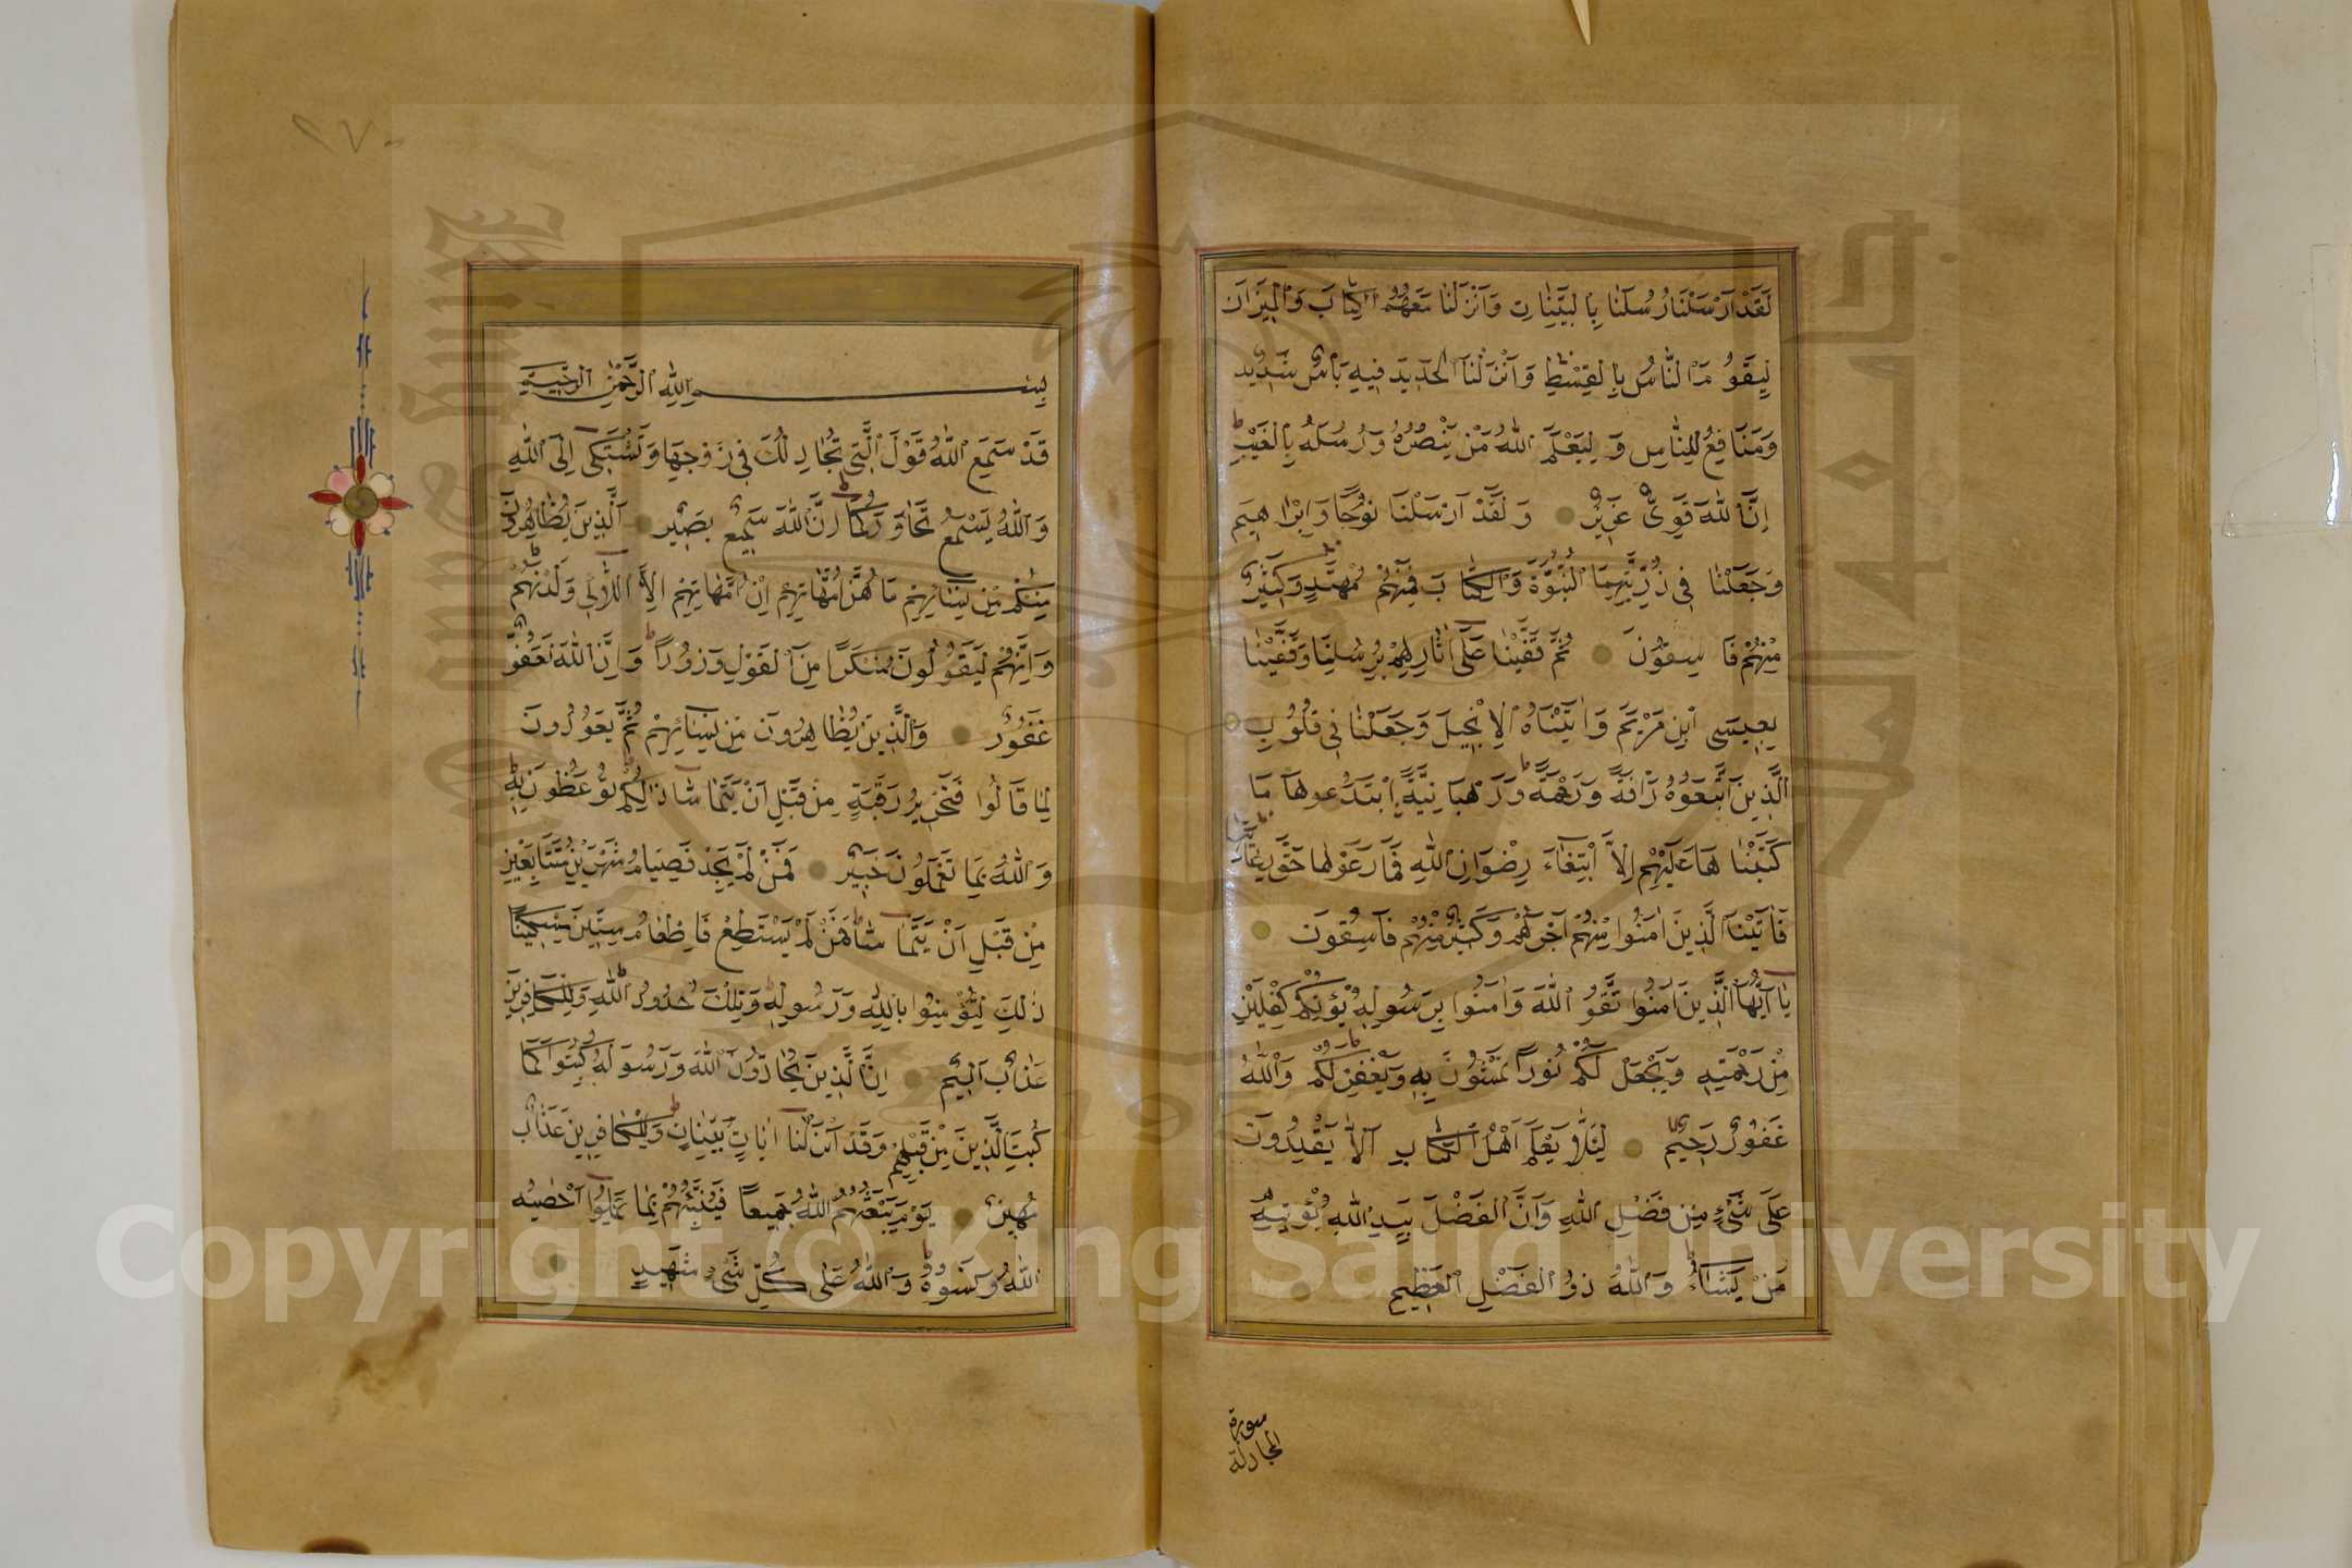 لَقَدْ اَرْسَلْنَا رُسُلَنَا بِالْبَيِّنَاتِ وَاَنْزَلْنَا مَعَهُمُ الْكِتَابَ وَالْمِيزَانَ
لِيَقُومَ النَّاسُ بِالْقِسْطِ وَاَنْزَلْنَا الْحَدِيدَ فِيهِ بَاْسٌ شَدِيدٌ
وَمَنَافِعُ لِلنَّاسِ وَلِيَعْلَمَ اللّٰهُ مَنْ يَنْصُرُهُ وَرُسُلَهُ بِالْغَيْبِ
اِنَّ اللّٰهَ قَوِىٌّ عَزِيزٌ وَلَقَدْ اَرْسَلْنَا نُوحًا وَاِبْرٰاهِيمَ
وَجَعَلْنَا فِى ذُرِّيَّتِهِمَا النُّبُوَّةَ وَالْكِتَابَ فَمِنْهُمْ مُهْتَدٍ وَكَثِيرٌ
مِنْهُمْ فَاسِقُونَ ثُمَّ قَفَّيْنَا عَلٰى اٰثَارِهِمْ بِرُسُلِنَا وَقَفَّيْنَا
بِعِيسَى ابْنِ مَرْيَمَ وَاٰتَيْنَاهُ الْاِنْجِيلَ وَجَعَلْنَا فِى قُلُوبِ
الَّذِينَ اتَّبَعُوهُ رَاْفَةً وَرَحْمَةً وَرَهْبَانِيَّةً ابْتَدَعُوهَا مَا
كَتَبْنَاهَا عَلَيْهِمْ اِلَّا ابْتِغَاءَ رِضْوَانِ اللّٰهِ فَمَا رَعَوْهَا حَقَّ رِعَايَتِهَا
فَاٰتَيْنَا الَّذِينَ اٰمَنُوا مِنْهُمْ اَجْرَهُمْ وَكَثِيرٌ مِنْهُمْ فَاسِقُونَ
يَا اَيُّهَا الَّذِينَ اٰمَنُوا اتَّقُوا اللّٰهَ وَاٰمِنُوا بِرَسُولِهِ يُؤْتِكُمْ كِفْلَيْنِ
مِنْ رَحْمَتِهِ وَيَجْعَلْ لَكُمْ نُورًا تَمْشُونَ بِهِ وَيَغْفِرْ لَكُمْ وَاللّٰهُ
غَفُورٌ رَحِيمٌ لِئَلَّا يَعْلَمَ اَهْلُ الْكِتَابِ اَلَّا يَقْدِرُونَ
عَلٰى شَىْءٍ مِنْ فَضْلِ اللّٰهِ وَاَنَّ الْفَضْلَ بِيَدِ اللّٰهِ يُؤْتِيهِ
مَنْ يَشَاءُ وَاللّٰهُ ذُو الْفَضْلِ الْعَظِيمِ
سورة
المجادلة
٢٧٠
بِسْمِ اللّٰهِ الرَّحْمٰنِ الرَّحِيمِ
قَدْ سَمِعَ اللّٰهُ قَوْلَ الَّتِى تُجَادِلُكَ فِى زَوْجِهَا وَتَشْتَكِى اِلَى اللّٰهِ
وَاللّٰهُ يَسْمَعُ تَحَاوُرَكُمَا اِنَّ اللّٰهَ سَمِيعٌ بَصِيرٌ اَلَّذِينَ يُظَاهِرُونَ
مِنْكُمْ مِنْ نِسَائِهِمْ مَا هُنَّ اُمَّهَاتِهِمْ اِنْ اُمَّهَاتُهُمْ اِلَّا اللَّائِى وَلَدْنَهُمْ
وَاِنَّهُمْ لَيَقُولُونَ مُنْكَرًا مِنَ الْقَوْلِ وَزُورًا وَاِنَّ اللّٰهَ لَعَفُوٌّ
غَفُورٌ وَالَّذِينَ يُظَاهِرُونَ مِنْ نِسَائِهِمْ ثُمَّ يَعُودُونَ
لِمَا قَالُوا فَتَحْرِيرُ رَقَبَةٍ مِنْ قَبْلِ اَنْ يَتَمَاسَّا ذٰلِكُمْ تُوعَظُونَ بِهِ
وَاللّٰهُ بِمَا تَعْمَلُونَ خَبِيرٌ فَمَنْ لَمْ يَجِدْ فَصِيَامُ شَهْرَيْنِ مُتَتَابِعَيْنِ
مِنْ قَبْلِ اَنْ يَتَمَاسَّا فَمَنْ لَمْ يَسْتَطِعْ فَاِطْعَامُ سِتِّينَ مِسْكِينًا
ذٰلِكَ لِتُؤْمِنُوا بِاللّٰهِ وَرَسُولِهِ وَتِلْكَ حُدُودُ اللّٰهِ وَلِلْكَافِرِينَ
عَذَابٌ اَلِيمٌ اِنَّ الَّذِينَ يُحَادُّونَ اللّٰهَ وَرَسُولَهُ كُبِتُوا كَمَا
كُبِتَ الَّذِينَ مِنْ قَبْلِهِمْ وَقَدْ اَنْزَلْنَا اٰيَاتٍ بَيِّنَاتٍ وَلِلْكَافِرِينَ عَذَابٌ
مُهِينٌ يَوْمَ يَبْعَثُهُمُ اللّٰهُ جَمِيعًا فَيُنَبِّئُهُمْ بِمَا عَمِلُوا اَحْصٰيهُ
اللّٰهُ وَنَسُوهُ وَاللّٰهُ عَلٰى كُلِّ شَىْءٍ شَهِيدٌ
Copyright © King Saud University